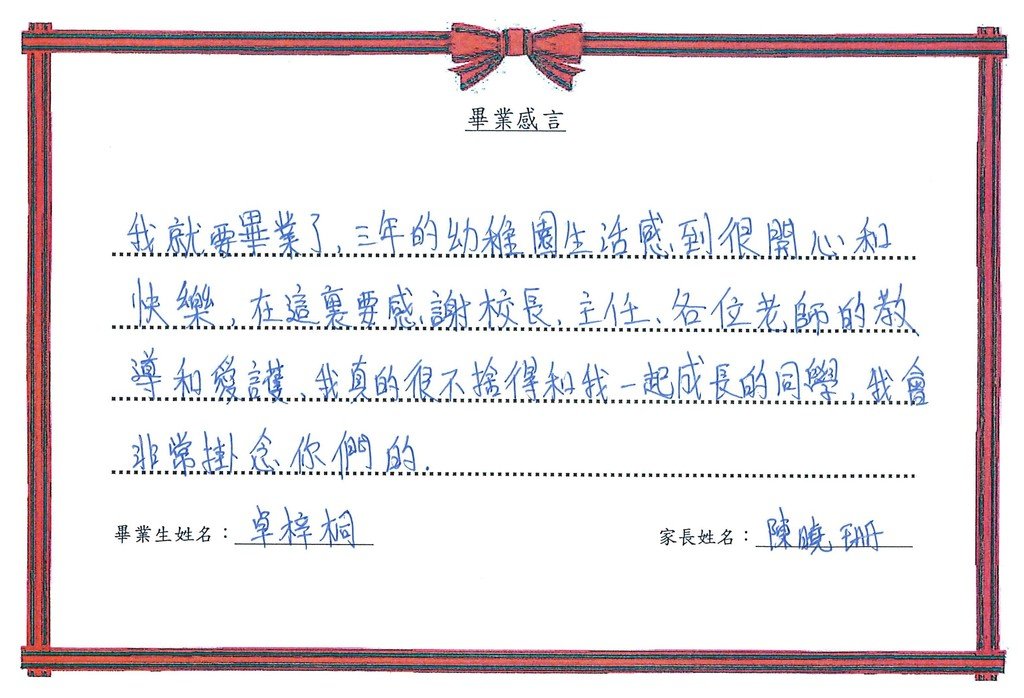 畢業感言
我就要畢業了,三年的幼稚園生活感到很開心和
快樂,在這裏要感謝校長、主任、各位老師的教
導和愛護、我真的很不捨得和我一起成長的同學,我會
非常掛念你們的.
畢業生姓名：卓梓桐
家長姓名：陳曉珊